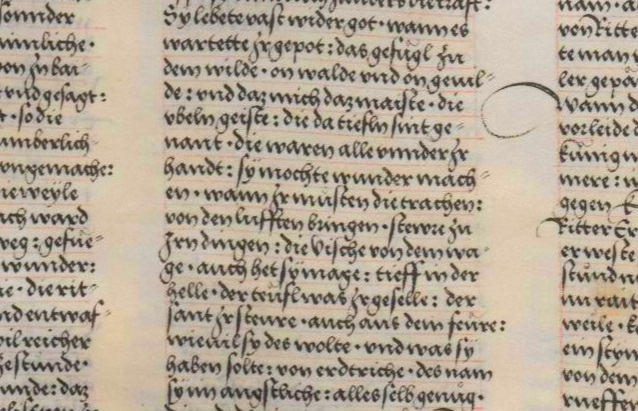 sonnder
nimliche·
von Jn bai-
vnd gesagt:
t· so die
nnberlich-
vngemache:
die weyle
ich ward
weg: gefüe-
wunder:
ie· die rit-
nd entwaf-
vil reicher
gestunde·
unde: daz
Sy lebete vast wider got· wann es
wartette Jr gepot: das gefügl zu
dem wilde· on walde vnd on geuil-
de: vnd daz mich daz maiste· die
vbeln geiste: die da tiefln sint ge-
nant· die waren alle vnnder Jr
handt: sy mochte wunder mach-
en· wann Jr müsten die trachen:
von den lufften bringen· stewre zu
Jrn dingen: die vische von dem wa-
ge· auch het sy mage: tieff in der
helle· der teüfl was Jr geselle: der
sant Jr steure· auch aus dem feure:
wieuil sy des wolte· vnd was sy
haben solte: von erdtriche· des nam
sy im angstliche: alles selb genüg·
nam· a
von Ritte
te man
ler gepä
wann d
vorleide
künig
mere:
gegen
Ritter Er
er weste
stünd
im rait
weile·
ein stym
von dem
rueffen